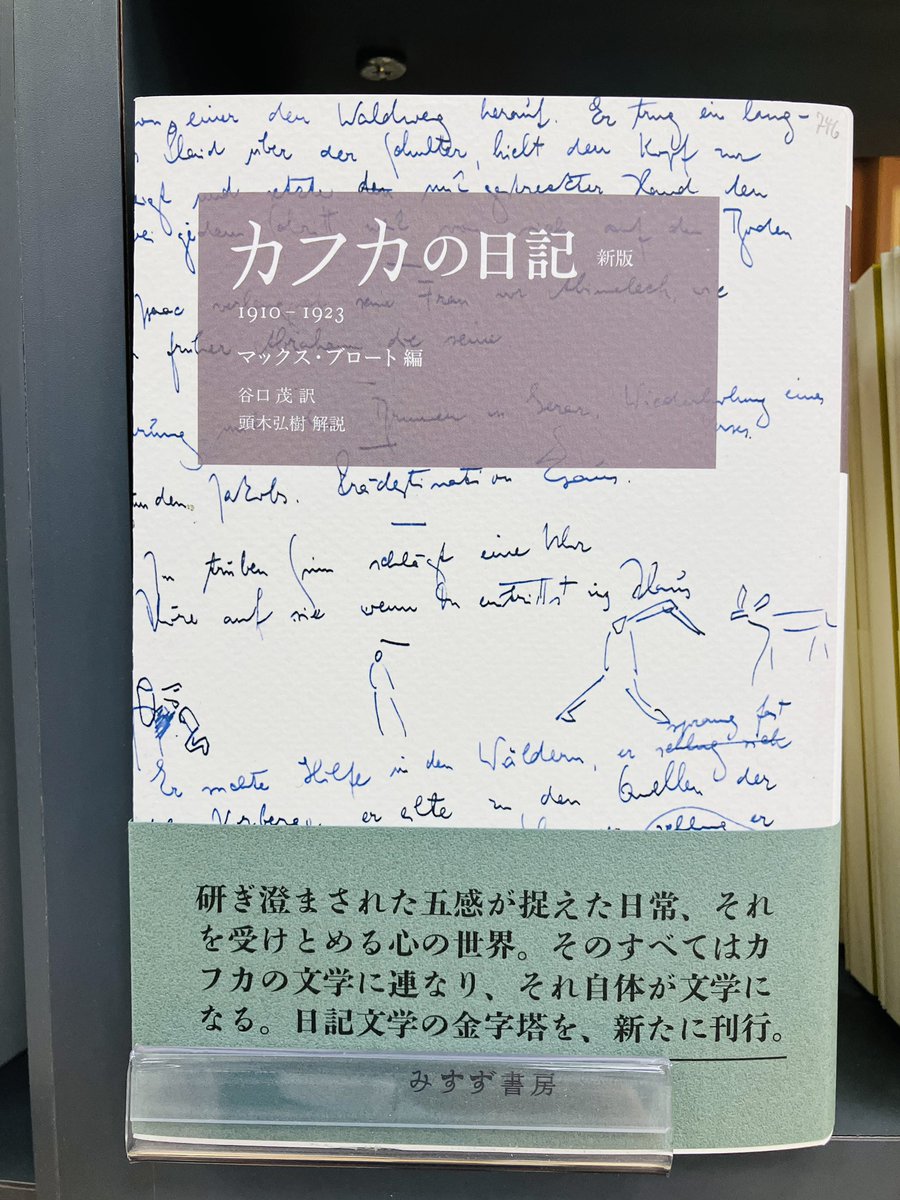 von einer den Waldweg herauf. Er trug ein lang-
746
Kleid über der Schulter, hielt den Kopf zur
mit gestreckter Hand den
auf den Boden
カフカの日記 新版
seine Frau vor Abimelech wie
1910–1923
früher Abraham die seine
マックス・ブロート 編
谷口 茂 訳
Brunnen in Gerar. Wiederholung eines
頭木弘樹 解説
Jakobs. Prädestination Esaus.
In trüben Sinn schlägt eine Uhr
Höre auf sie wenn du eintrittst ins Haus
sprang fast
Er suchte Hilfe in den Wäldern, er schlug sich
er eilte zu den Quellen der
er
研ぎ澄まされた五感が捉えた日常、それ
を受けとめる心の世界。そのすべてはカ
フカの文学に連なり、それ自体が文学に
なる。日記文学の金字塔を、新たに刊行。
みすず書房